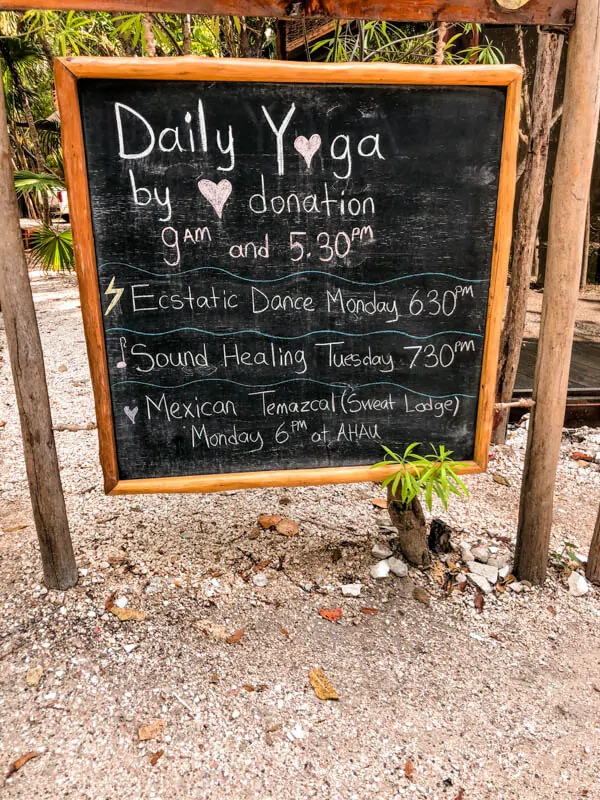 Daily Y♥ga
by ♥ donation
9AM and 5.30PM
Ecstatic Dance Monday 630PM
Sound Healing Tuesday 730PM
Mexican Temazcal (Sweat Lodge)
Monday 6PM at AHAU